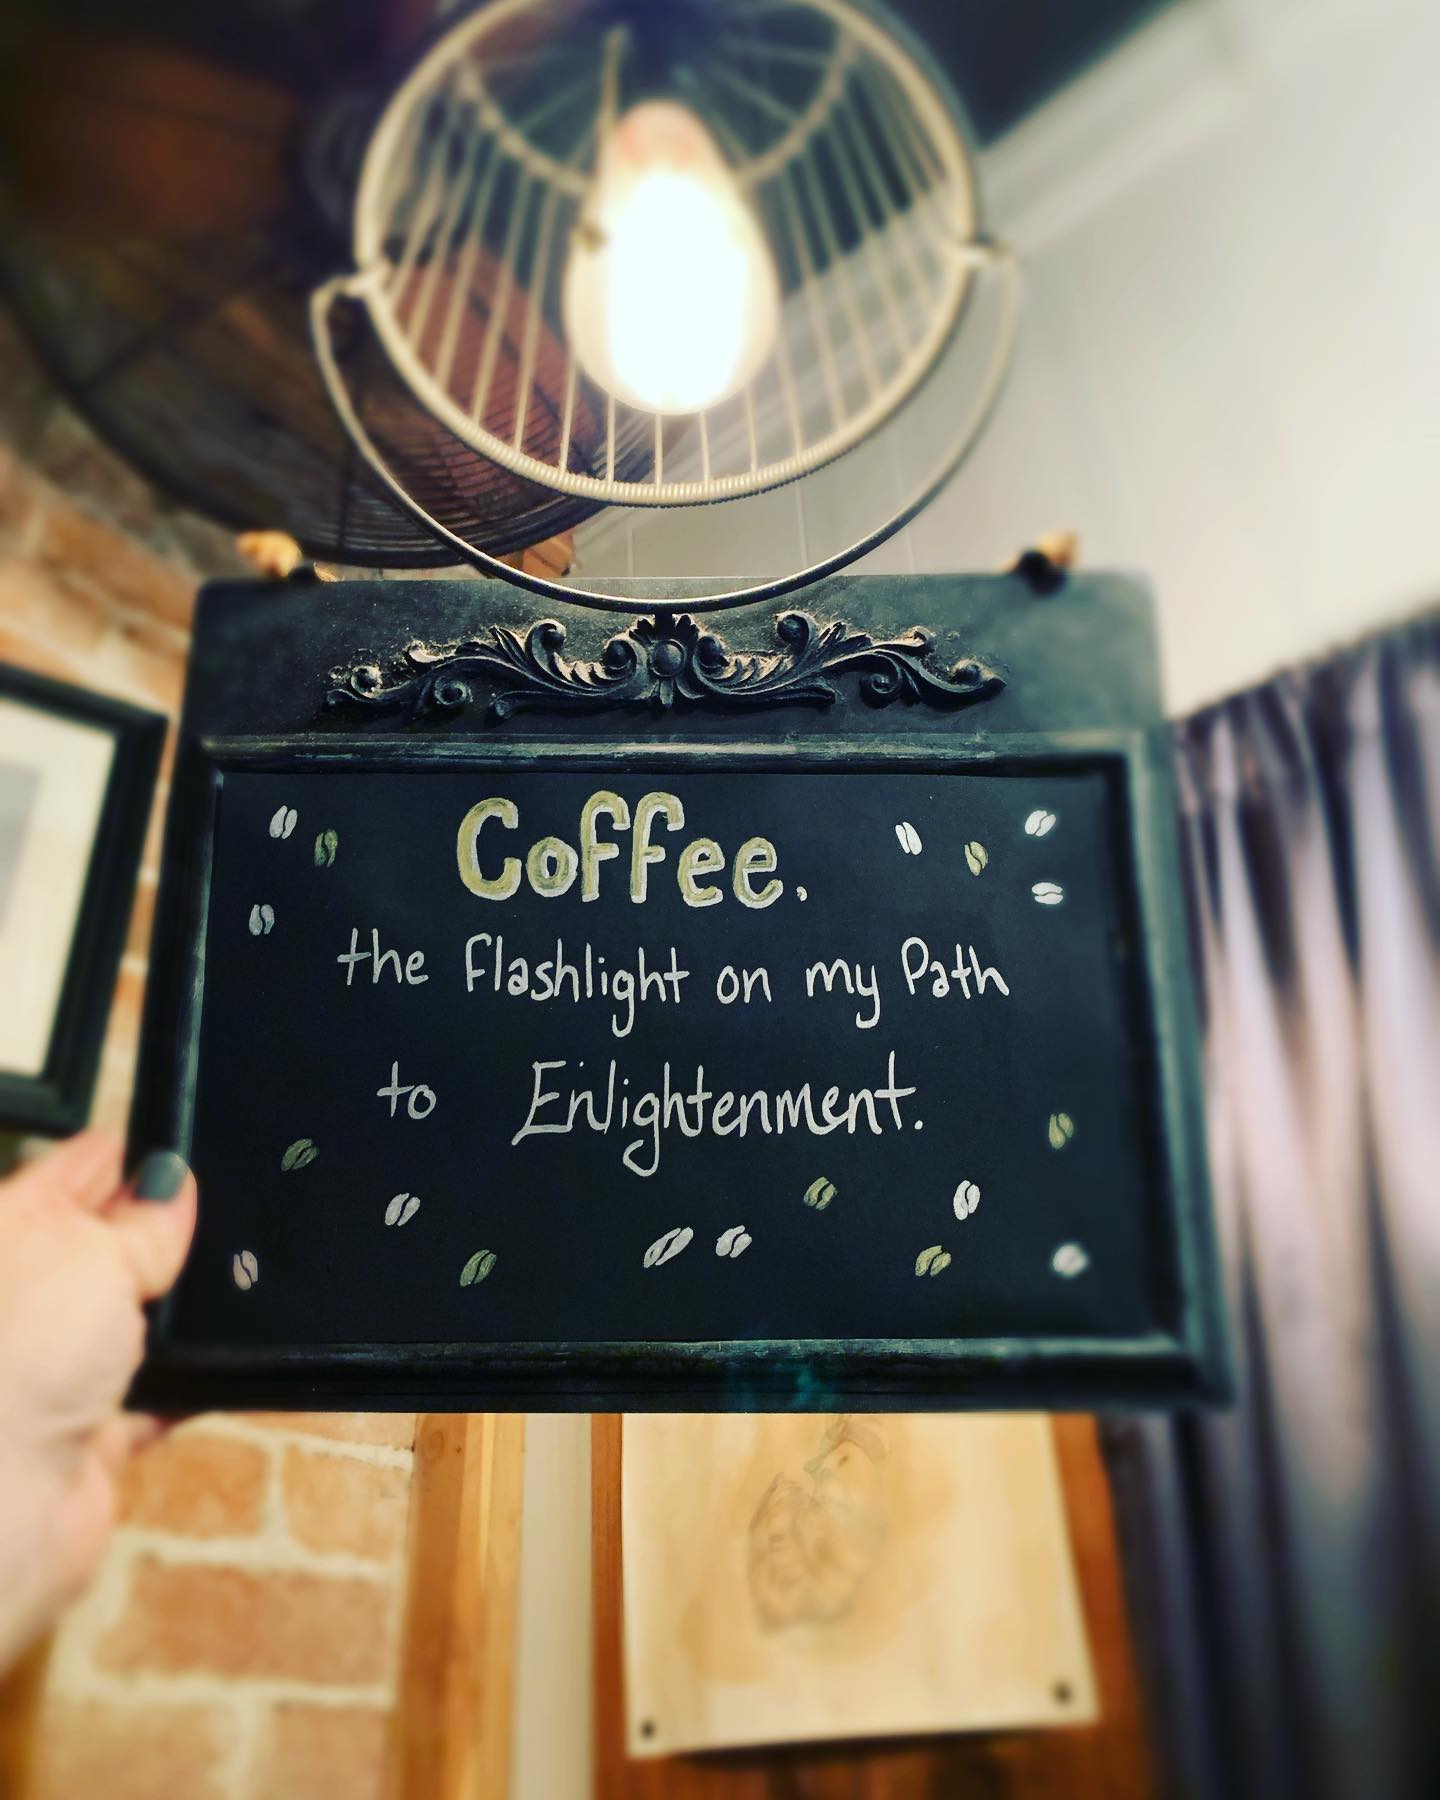 Coffee.
the Flashlight on my Path
to Enlightenment.